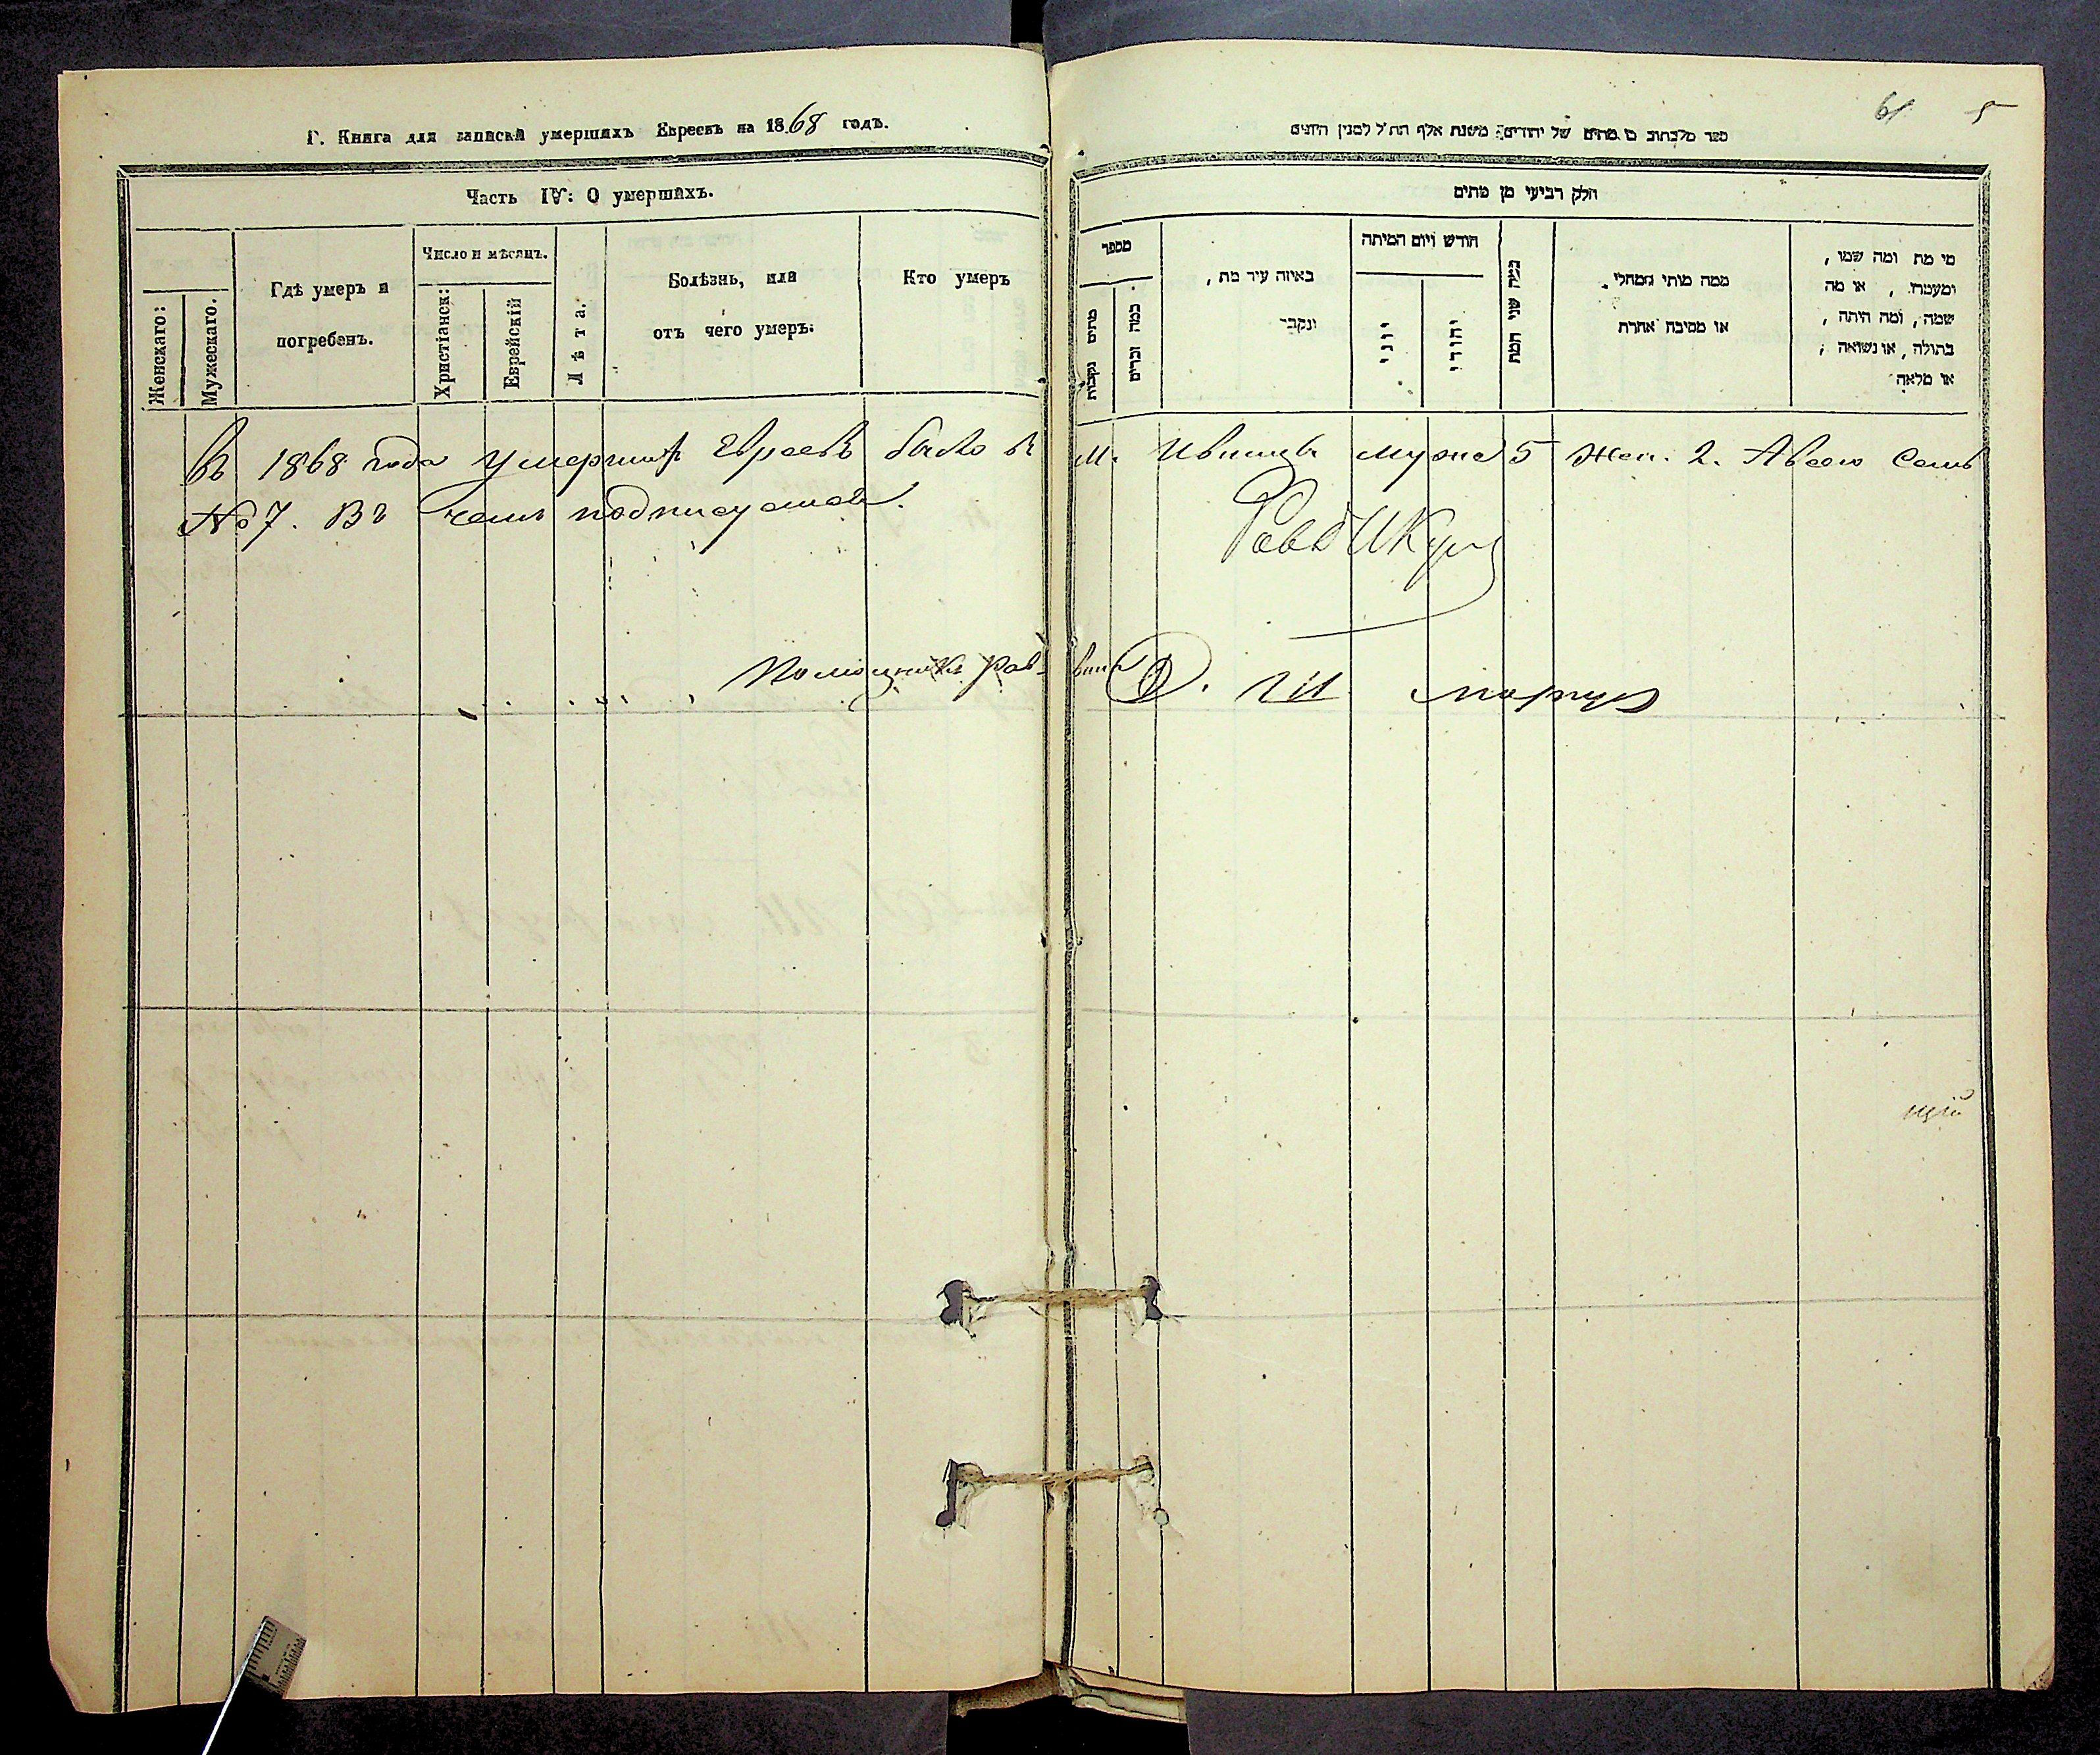 Г. Книга для записки умершихъ Евреевъ на 1868 годъ.
Часть IV: О умершихъ.
Женскаго:
Мужескаго.
Гдѣ умеръ и
погребенъ.
Число и мѣсяцъ.
Христіанск:
Еврейскій
Лѣта.
Болѣзнь, или
отъ чего умеръ:
Кто умеръ
61 5
ספר מלכתוב מן מתים של יהודים משנת אלף תת״ל למנין היונים
חלק רביעי מן מתים
מספר
מתים נקבות
כמה זכרים
באיזה עיר מת,
ונקבר
חודש ויום המיתה
יוני
יהודי
כמה שני המת
ממה מותי המחלי
או מסיבה אחרת
מי מת ומה שמו,
ומעמדו, או מה
שמה, ומה היתה,
בתולה, או נשואה;
או מלאה
Въ 1868 года умершихъ Евреевъ было въ м. Ивница мужс 5 жен. 2. А всего семь
№ 7. Въ чемъ подписуемся.
Помощникъ Раввина
щій